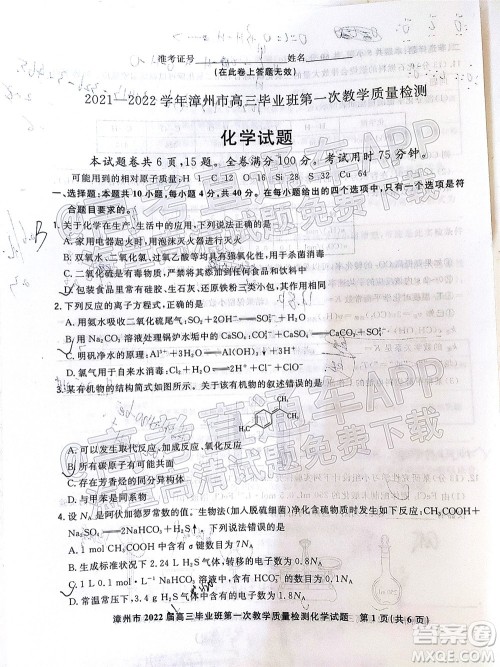 准考证号 姓名
(在此卷上答题无效)
2021—2022学年漳州市高三毕业班第一次教学质量检测
化学试题
本试题卷共6页,15题。全卷满分100分。考试用时75分钟。
可能用到的相对原子质量: H 1 C 12 N 14 O 16 S 32 Cu 64
一、选择题:本题共10小题,每小题4分,共40分。在每小题给出的四个选项中,只有一个选项是符
合题目要求的。
1. 关于化学在生产、生活中的应用,下列说法正确的是
A. 家用电器起火时,用泡沫灭火器进行灭火
B. 双氧水、二氧化氯、过氧乙酸等均具有强氧化性,可用于杀菌消毒
C. 二氧化硫是有毒物质,不能添加到任何食品和饮料中
D. 包装食品常使用硅胶、生石灰、还原铁粉三类小包,其作用相同
2. 下列反应的离子方程式,正确的是
A. 用氨水吸收二氧化硫尾气: SO₂+2OH⁻══SO₃²⁻+H₂O
B. 用Na₂CO₃溶液处理锅炉水垢中的CaSO₄: CaSO₄+CO₃²⁻══CaCO₃+SO₄²⁻
C. 明矾净水的原理: Al³⁺+3H₂O══Al(OH)₃+3H⁺
D. 用氯气对自来水消毒: Cl₂+H₂O══2H⁺+Cl⁻+ClO⁻
3. 某有机物的结构简式如图所示。关于该有机物的叙述错误的是
H₃C CH₃
A. 可以发生取代反应、加成反应、氧化反应
B. 所有碳原子有可能共面
C. 存在芳香烃类的同分异构体
D. 与甲苯是同系物
4. 设Nᴀ是阿伏加德罗常数的值。生物流体(加入脱硫细菌)净化模式时发生如下反应: CH₃COOH+
Na₂SO₄══2NaHCO₃+H₂S↑。下列说法错误的是
A. 1 mol CH₃COOH分子中含有σ键数目为7Nᴀ
B. 生成标准状况下2.24 L H₂S转移的电子数目为0.8Nᴀ
C. 1 L 0.1 mol·L⁻¹NaHCO₃溶液中,
D. 常温常压下,
漳州市2022届高三毕业班第一次教学质量检测化学试题 第1页(共6页)
高考直通车APP
海量高清试题免费下载
高考直通车APP
海量高清试题免费下载
答案圈
MXQE.COM